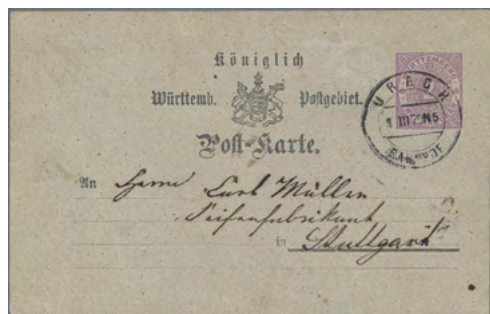 Königlich
Württemb. Postgebiet.
Post-Karte.
URACH
BAHNHOF
An Herrn Carl Müller
Seifenfabrikant
in Stuttgart